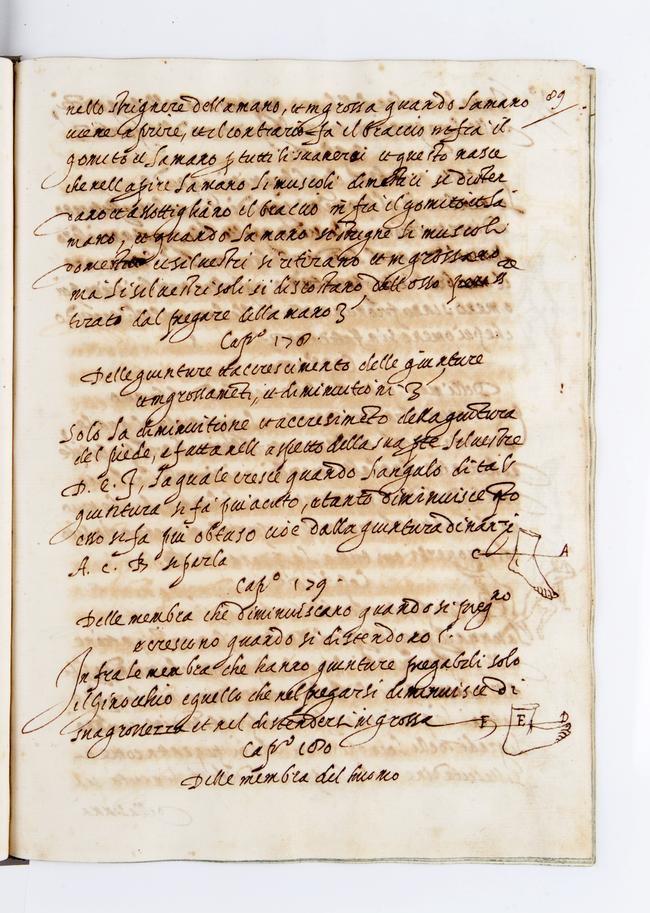 89
nello strignere della mano, et ingrossa quando la mano
viene aprire, et il contrario fa il braccio infra il
gomito et la mano tutti li et questo nasce
che nell aprire la mano li muscoli dimestici si disten
dano et assottigliano il braccio infra il gomito et la
mano, et quando la mano si strigne li muscoli
domestici et silvestri si retirano et ingrossano
ma li silvestri soli si discostano dell osso
tirati dal piegare della mano
Cap.º 178.
Delle giunture et accrescimento delle giunture
et ingrossamēti, et diminuitioni
Solo la diminuitione et accresimēto della giuntura
del piede, e fatta nell aspetto della sua pte silvestre
D. e. F, la quale cresce quando l'angulo di tal
giuntura si fa piu acuto, e tanto diminuisce
esso si fa piu obtuso cioè dalla giuntura dinarzi
A. c. B si parla
C A
Cap.º 179.
Delle membra che diminuiscano quando si piegno
e crescono quando si distendono
Infra le membra che hanno giunture piegabili solo
il ginocchio e quello che nel piegarsi diminuisce di
sua grossezza et nel distendersi ingrossa
F E D
Cap.º 180
Delle membra del huomo